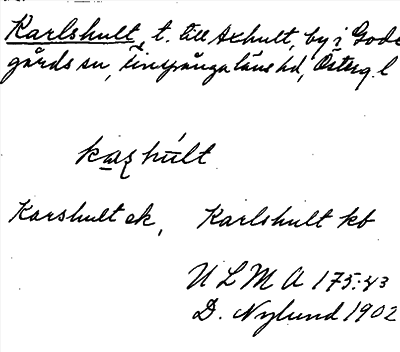 Karlshult, t. till Axhult, by i Gode
gårds sn, Finspånga läns hd, Österg. l
Karshult ek, Karlshult kb
U L M A 175:43
D. Nylund 1902